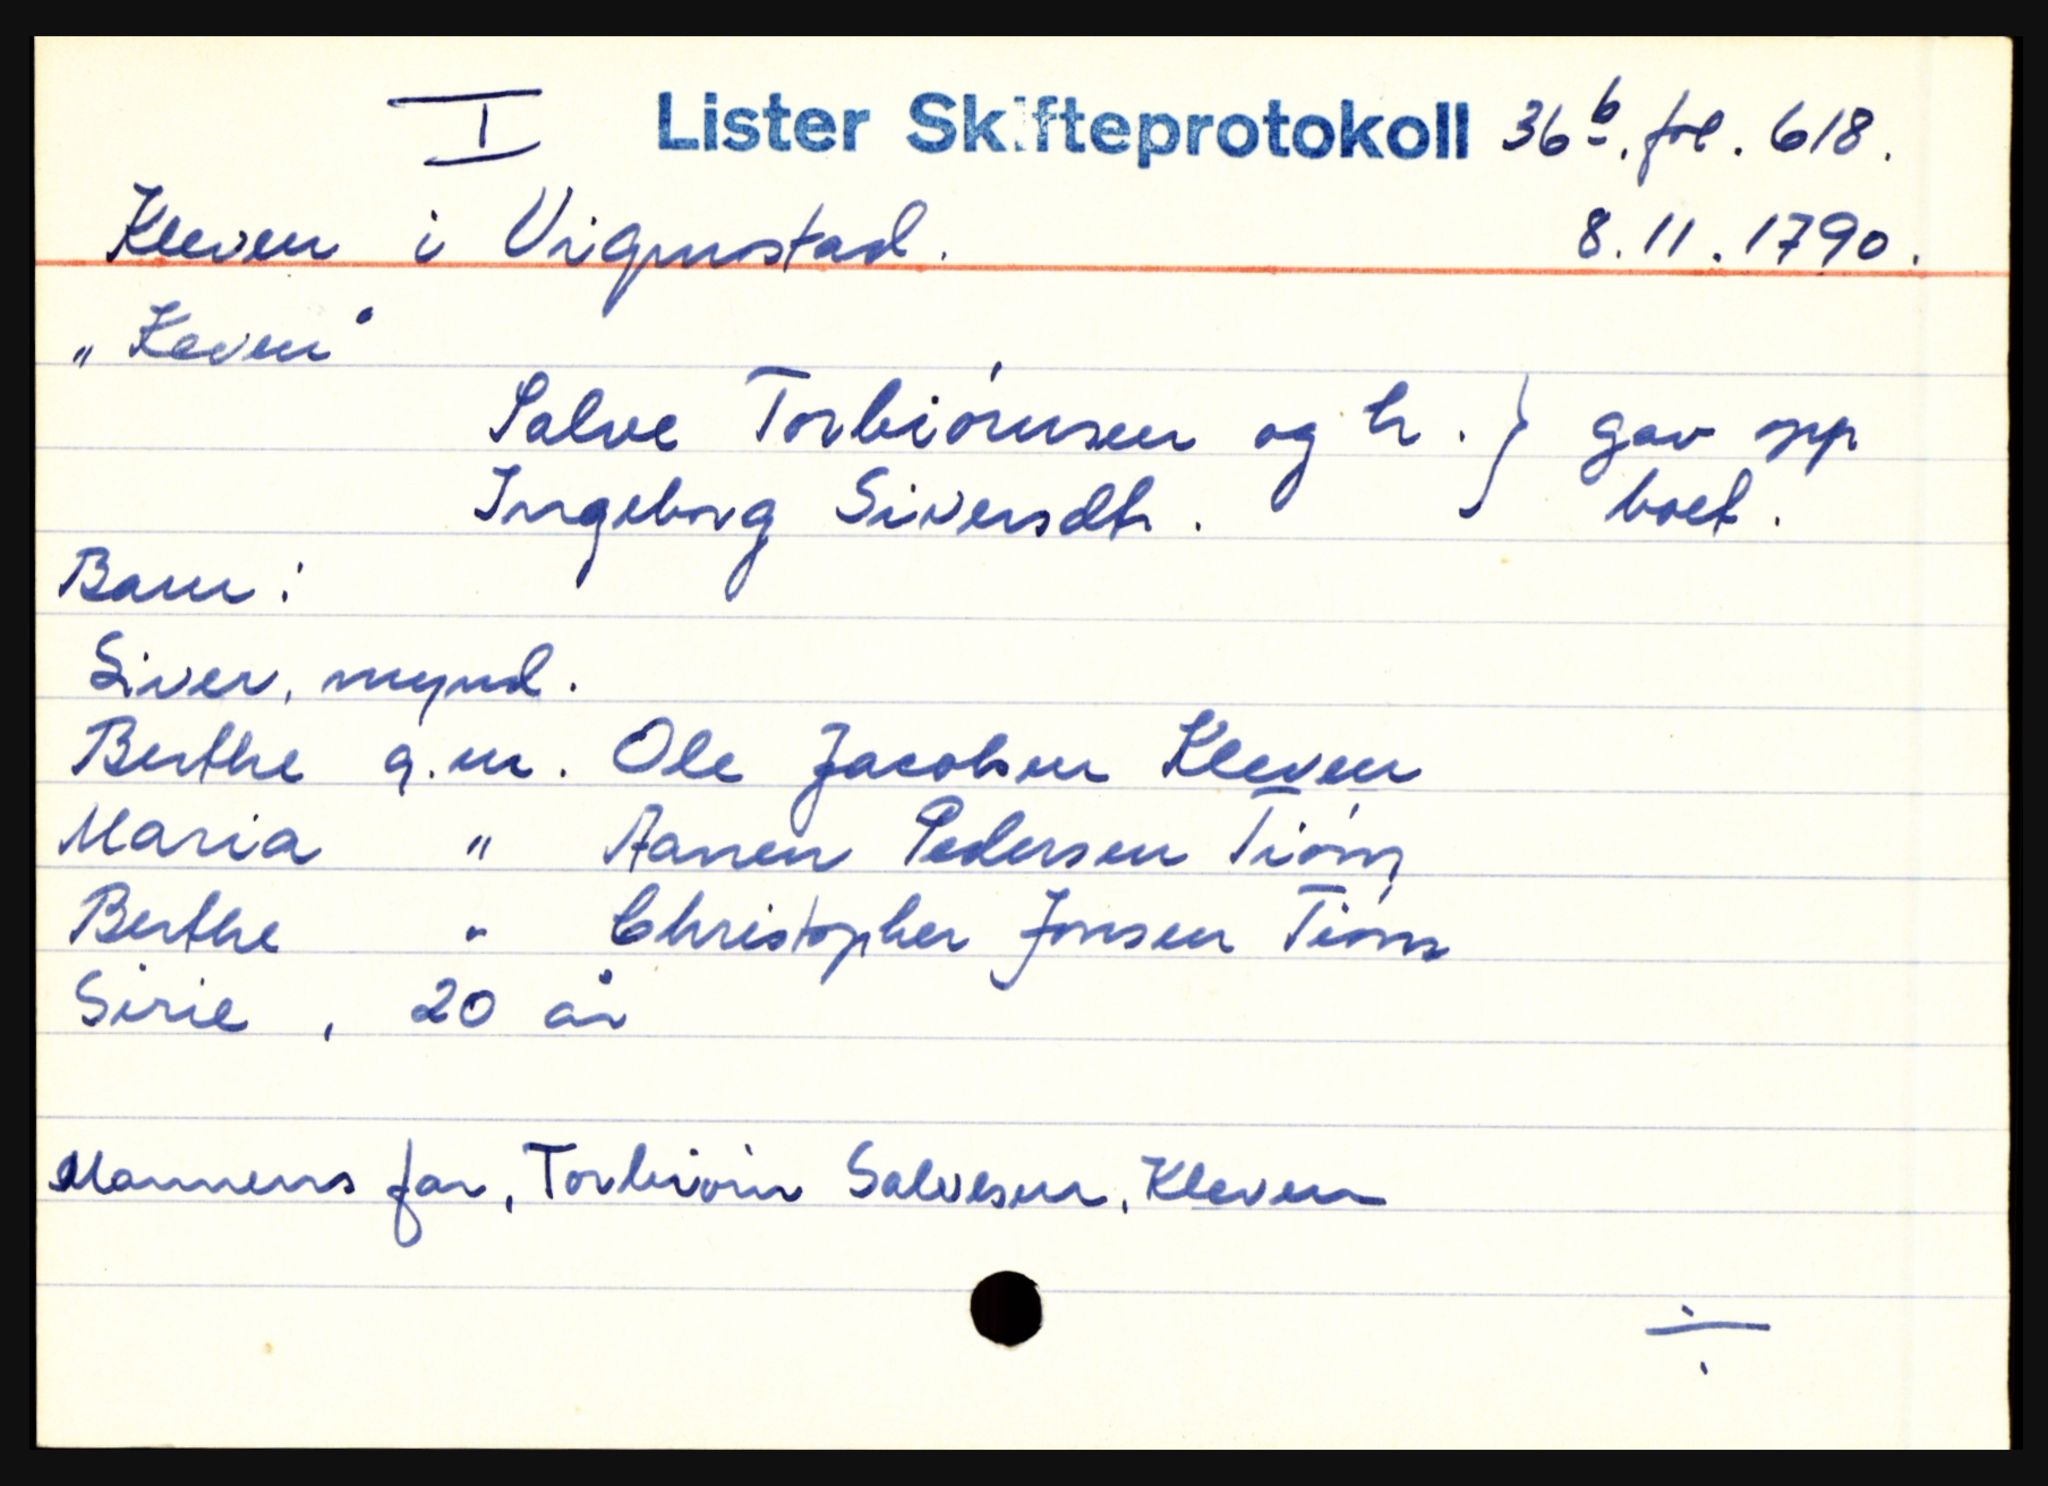 I Lister Skifteprotokoll 36b. fol. 618.
Kleven i Vigmostad. 8.11.1790.
"Keven"
Salve Torbiörnsen og h. } gav opp
Ingeborg Siversdtr. boet.
Barn:
Siver, mynd.
Berthe g.m. Ole Jacobsen Kleven
Maria " Aanen Pedersen Tiöm
Berthe " Christopher Jonsen Tiöm
Sirie, 20 år
Mannens far, Torbiörn Salvesen, Kleven
÷